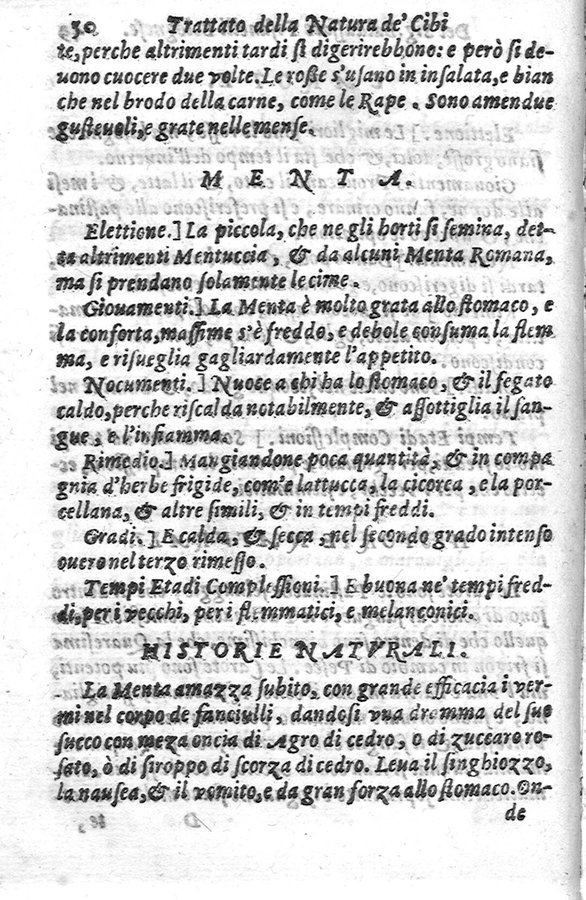 50 Trattato della Natura de' Cibi
te, perche altrimenti tardi si digerirebbono: e però si de-
uono cuocere due volte. Le roste s'usano in insalata, e bian
che nel brodo della carne, come le Rape. Sono amendue
gusteuoli, e grate nelle mense.
MENTA.
Elettione.] La piccola, che ne gli horti si semina, det-
ta altrimenti Mentuccia, & da alcuni Menta Romana,
ma si prendano solamente le cime.
Giouamenti.] La Menta è molto grata allo stomaco, e
la conforta, massime s'è freddo, e debole consuma la flem
ma, e risueglia gagliardamente l'appetito.
Nocumenti.] Nuoce a chi ha lo stomaco, & il fegato
caldo, perche riscalda notabilmente, & assottiglia il san-
gue, e l'infiamma.
Rimedio.] Mangiandone poca quantità, & in compa
gnia d'herbe frigide, com'e lattucca, la cicorea, e la por-
cellana, & altre simili, & in tempi freddi.
Gradi.] E calda, & secca, nel secondo grado intenso
ouero nel terzo rimesso.
Tempi Etadi Complessioni.] E buona ne' tempi fred-
di, per i vecchi, per i flemmatici, e melanconici.
HISTORIE NATVRALI.
La Menta amazza subito, con grande efficacia i ver-
mi nel corpo de fanciulli, dandosi vna dramma del suo
succo con meza oncia di Agro di cedro, o di zuccaro ro-
sato, ò di siroppo di scorza di cedro. Leua il singhiozzo,
la nausea, & il vomito, e da gran forza allo stomaco. On-
de